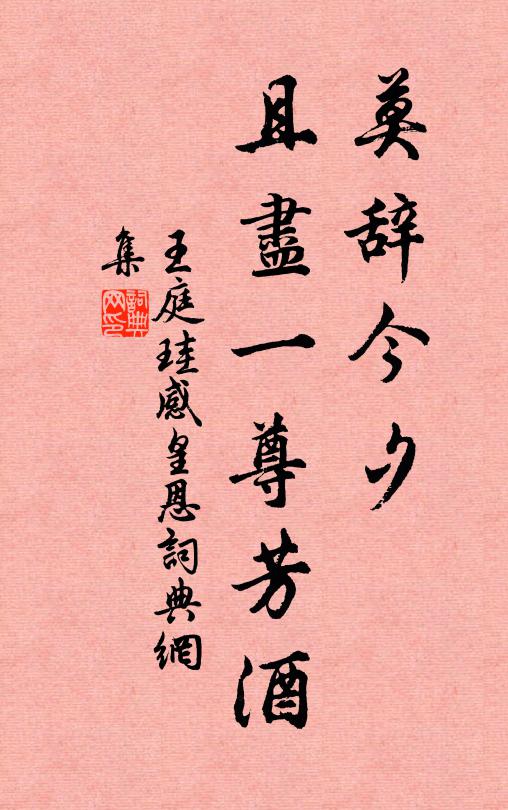 莫辞今夕
且盡一尊芳酒
王庭珪感皇恩詞典網
集
詞典网印